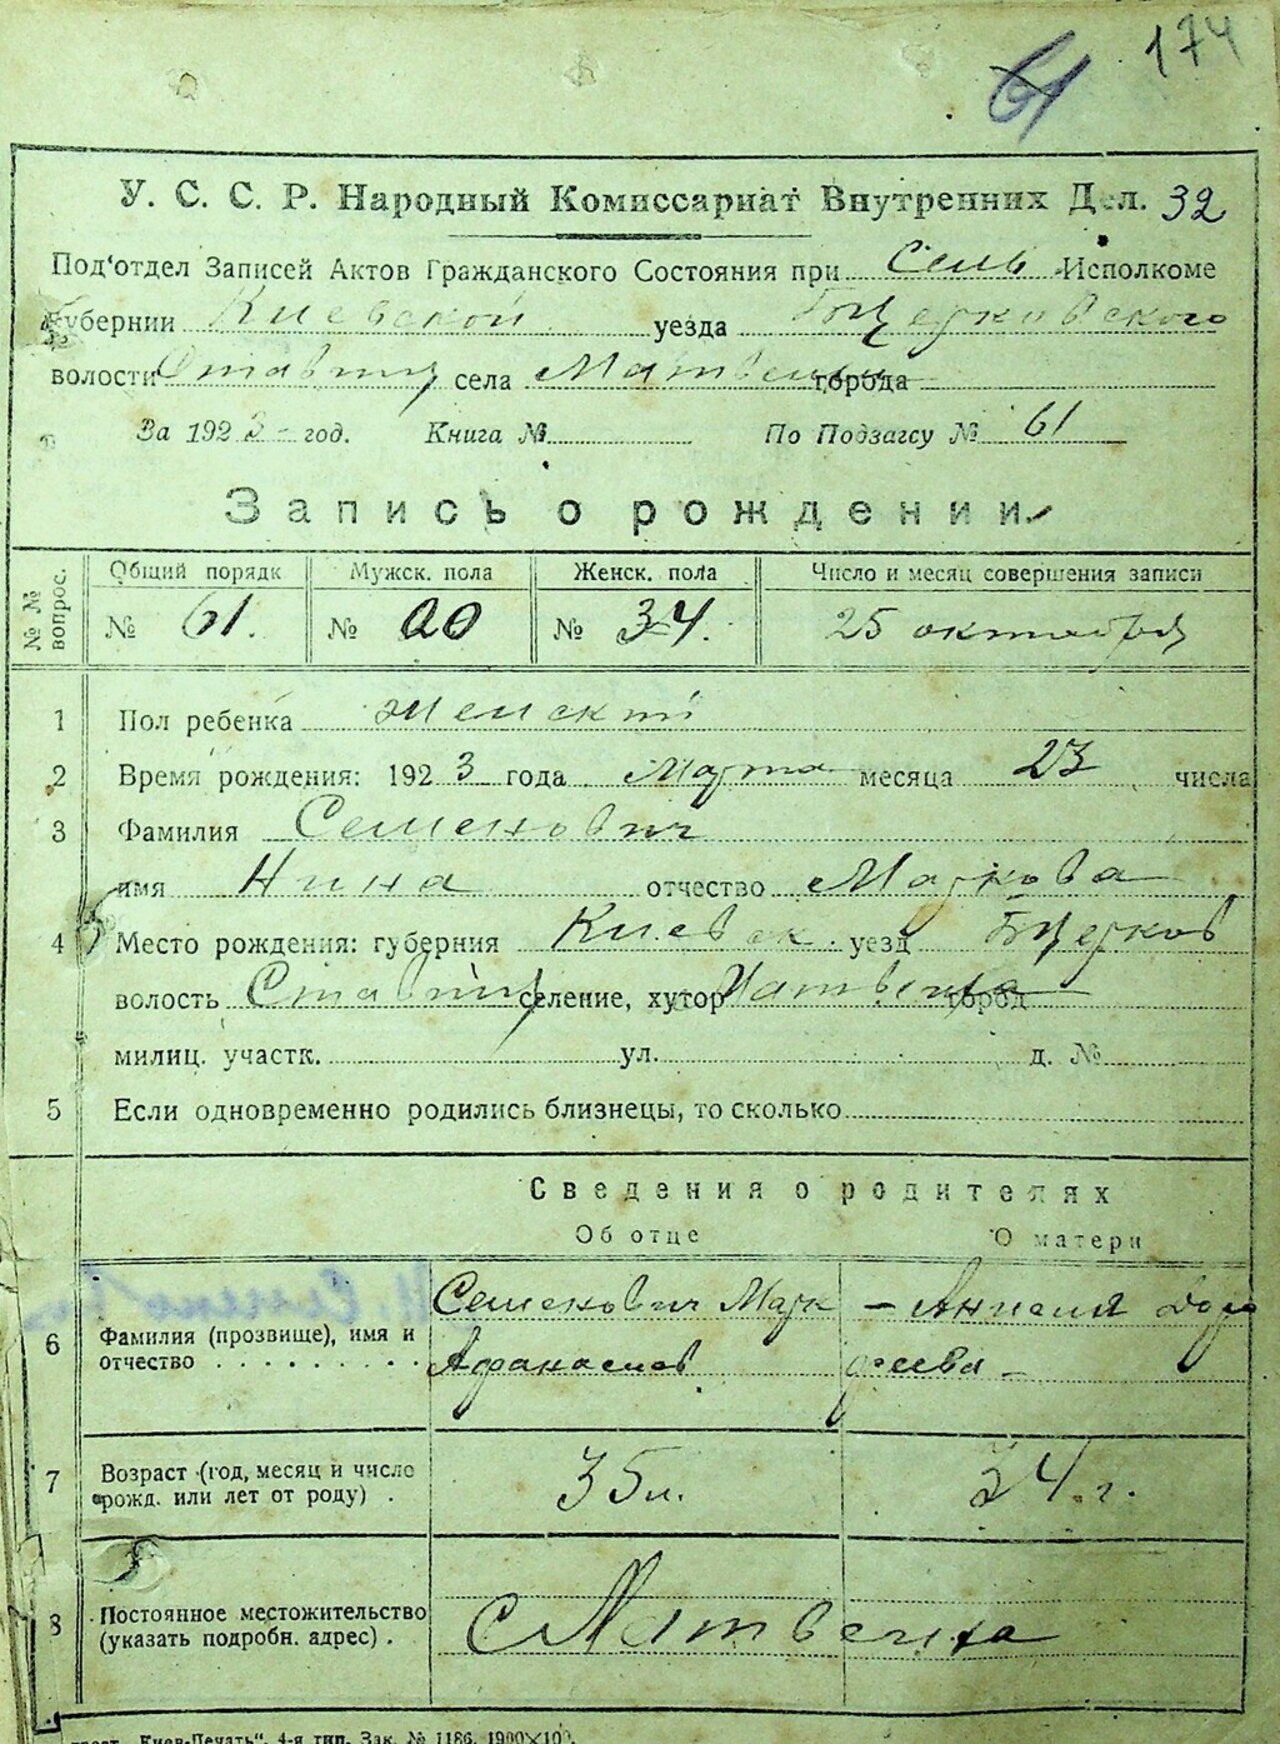 174
61
У. С. С. Р. Народный Комиссариат Внутренних Дел. 32
Под'отдел Записей Актов Гражданского Состояния при Сель Исполкоме
Губернии Киевской уезда БЦерковского
волости Ставищ села города
За 1923 год. Книга № По Подзагсу № 61
Запись о рождении
№ № вопрос. Общий порядк Мужск. пола Женск. пола Число и месяц совершения записи
№ 61. № 20 № 34. 25 октября
1 Пол ребенка женский
2 Время рождения: 1923 года Марта месяца 23 числа
3 Фамилия Семенович
имя Нина отчество Маркова
4 Место рождения: губерния Киевск. уезд БЦерков
волость Ставищ селение, хутор город
милиц. участк. ул. д. №
5 Если одновременно родились близнецы, то сколько
Сведения о родителях
Об отце О матери
6 Фамилия (прозвище), имя и отчество . . . . . . . . . . Семенович Марк Афанасиев
7 Возраст (год, месяц и число рожд. или лет от роду) . 35 л. 34 г.
8 Постоянное местожительство (указать подробн. адрес) . с
„Киев-Печать“, 4-я тип. Зак. № 1186.